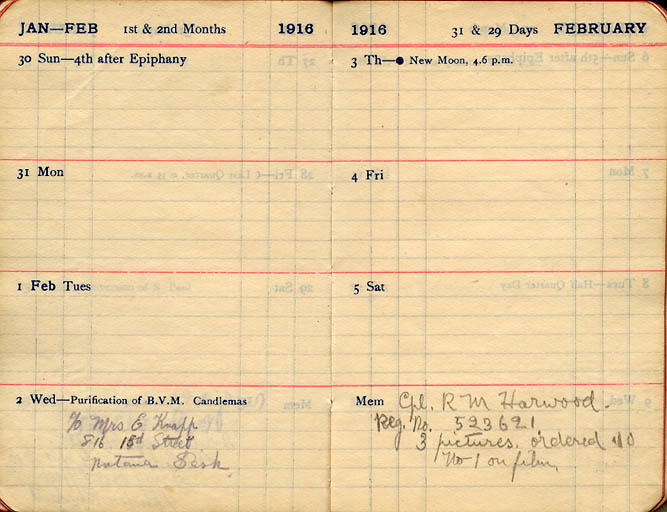 JAN—FEB 1st & 2nd Months 1916
30 Sun—4th after Epiphany
31 Mon
1 Feb Tues
2 Wed—Purification of B.V.M. Candlemas
Mrs E Knapp
816 15d Street
Sask
1916 31 & 29 Days FEBRUARY
3 Th—● New Moon, 4.6 p.m.
4 Fri
5 Sat
Mem Cpl. R M Harwood.
Reg. No. 523621
3 pictures. ordered
No 1 on film